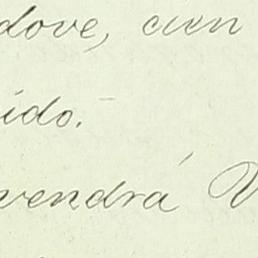 dove, cien
ido.
vendrá V